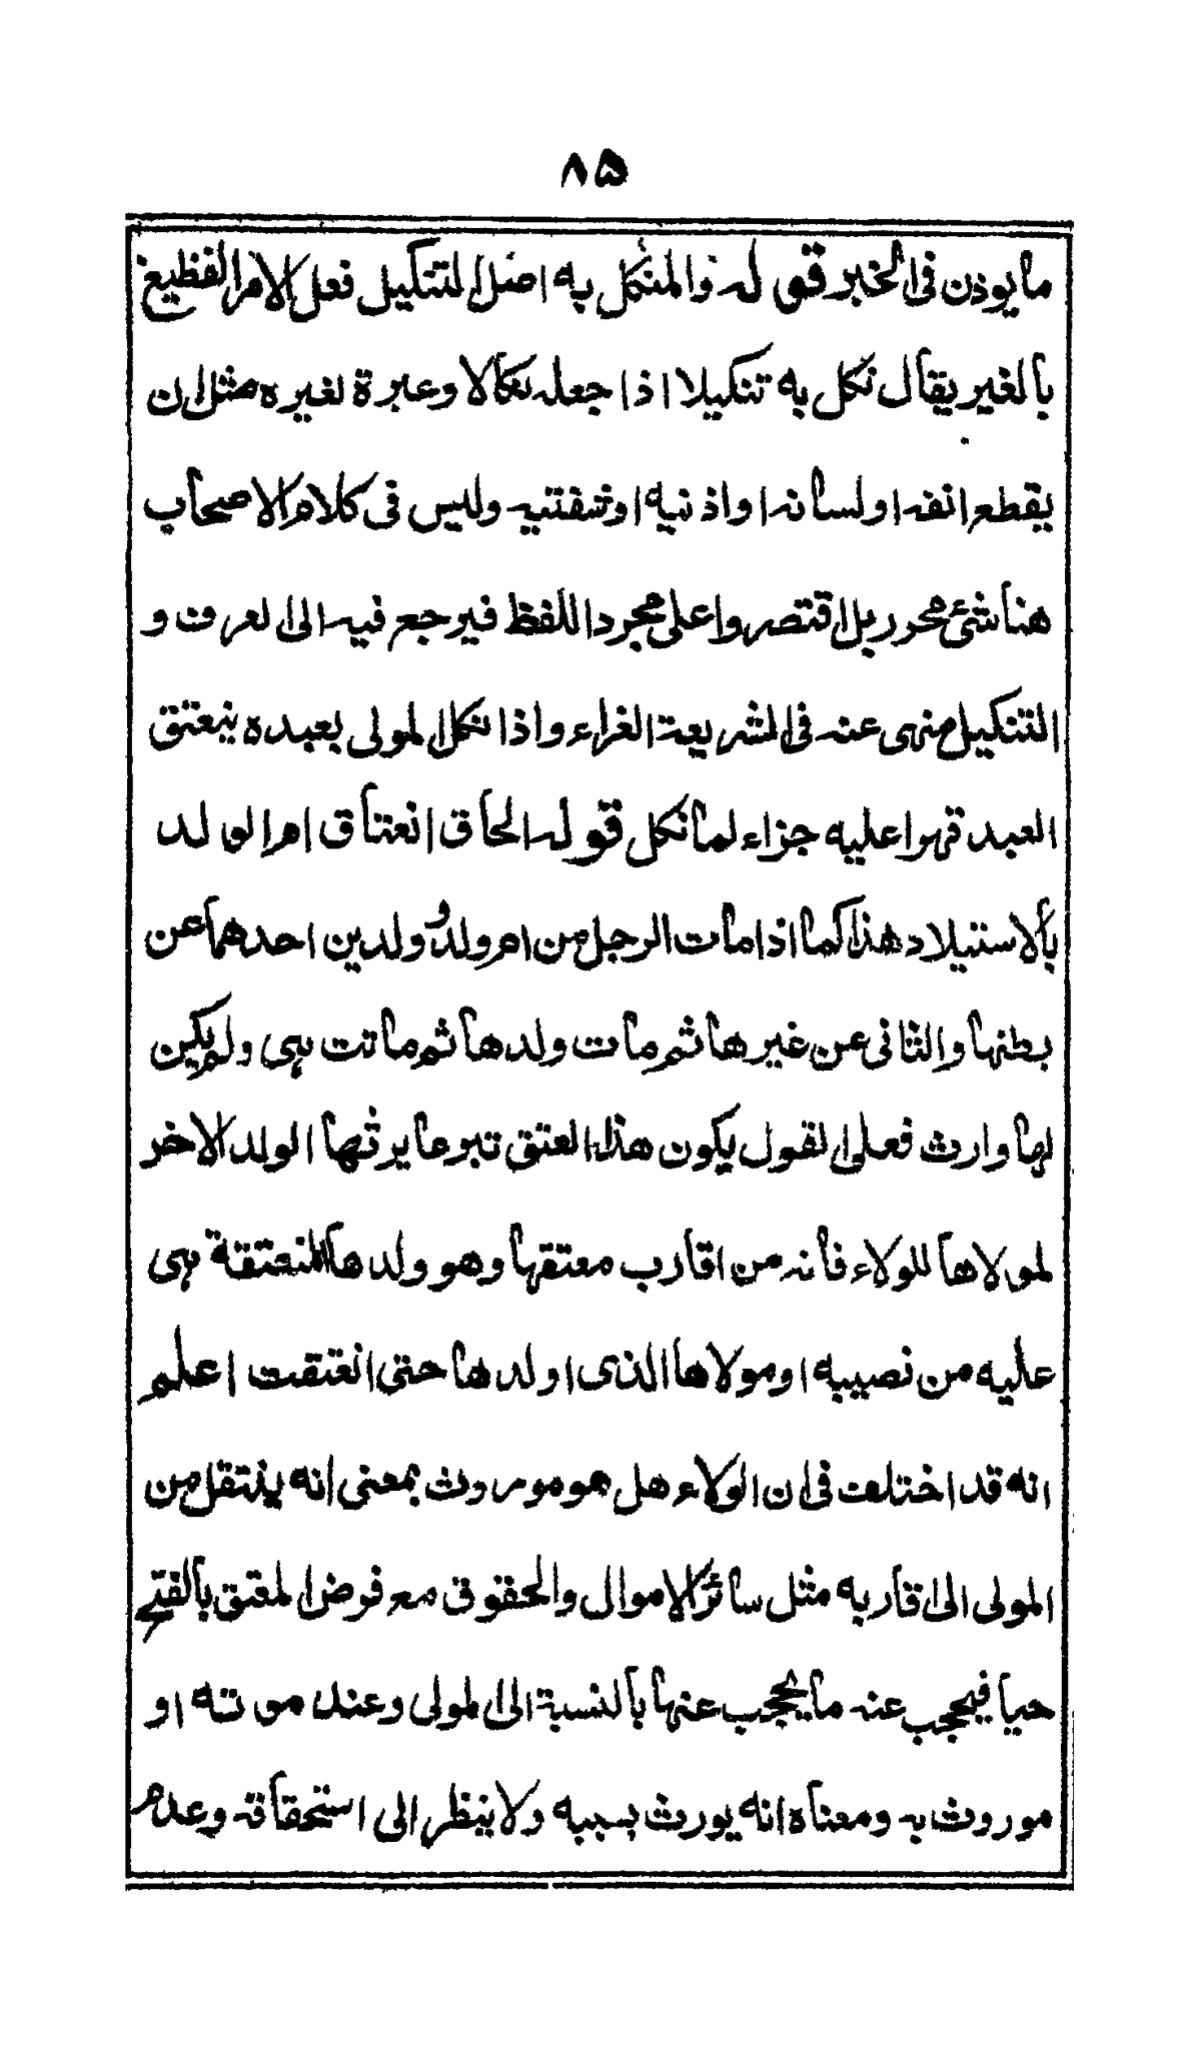 ٨۵
مايوذن فى الخبر قوله والمنكل به اصل التنكيل فعل الامر الفظيع
بالغير يقال نكل به تنكيلا اذا جعله نكالا وعبرة لغيره مثل ان
يقطع انفه او لسانه او اذنيه او شفتيه وليس فى كلام الاصحاب
هنا شئ محرر بل اقتصروا على مجرد اللفظ فيرجع فيه الى العرف و
التنكيل منهى عنه فى الشريعة الغراء واذا نكل المولى بعبده ينعتق
العبد قهرا عليه جزاء لما نكل قوله الحاق انعتاق ام الولد
بالاستيلاد هذا كما اذا مات الرجل من ام ولد و ولدين احدهما عن
بطنها والثانى عن غيرها ثم مات ولدها ثم ماتت هى ولم يكن
لها وارث فعلى القول يكون هذا العتق تبرعا يرثها الولد الاخر
لمولاها للولاء فانه من اقارب معتقها وهو ولدها المنعتقة هى
عليه من نصيبه او مولاها الذى اولدها حتى انعتقت اعلم
انه قد اختلف فى ان الولاء هل هو موروث بمعنى انه ينتقل من
المولى الى اقاربه مثل سائر الاموال والحقوق مع فرض المعتق بالفتح
حيا فيحجب عنه ما يحجب عنها بالنسبة الى المولى وعند موته او
موروث به ومعناه انه يورث بسببه ولا ينظر الى استحقاقه وعدم